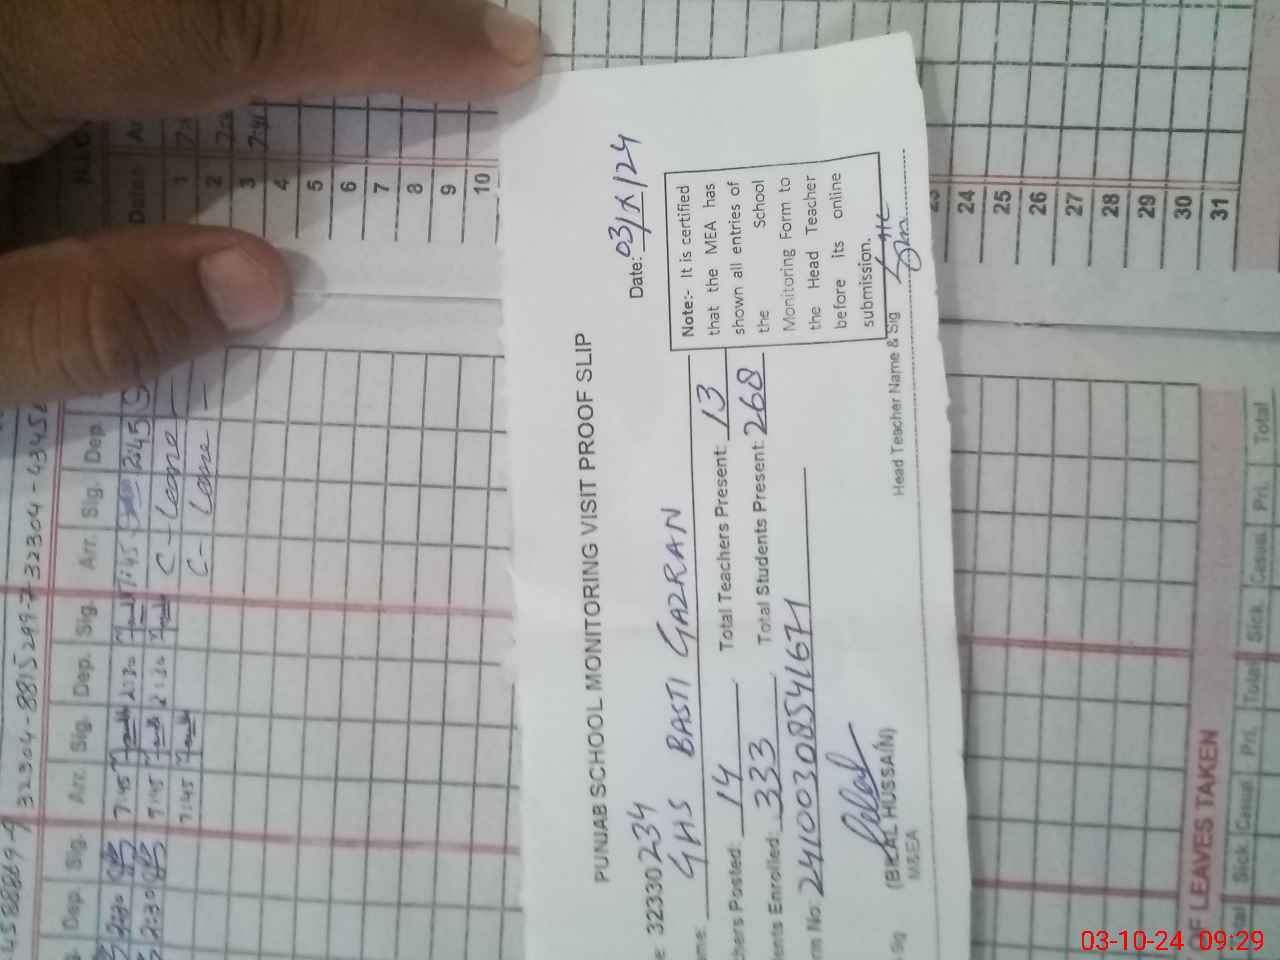 PUNJAB SCHOOL MONITORING VISIT PROOF SLIP
Date: 03/X/24
e: 32330234
me: GHS BASTI GAZRAN
hers Posted: 14 Total Teachers Present: 13
ents Enrolled: 333 Total Students Present: 268
rm No: 24100308541671
Note:- It is certified
that the MEA has
shown all entries of
the School
Monitoring Form to
the Head Teacher
before its online
submission.
Sig (BILAL HUSSAIN)
MEA
Head Teacher Name & Sig
Dates Ar
1
2
3
4
5
6
7
8
9
10
23
24
25
26
27
28
29
30
31
Dep. Sig. Arr. Sig. Dep. Sig. Arr. Sig. Dep.
2:30 7:45 2:30 7:45 2:45
2:30 7:45 2:30 C - Leave -
7:45 C - Leave -
OF LEAVES TAKEN
Sick. Casual Pri. Total Sick. Casual Pri. Total
03-10-24 09:29